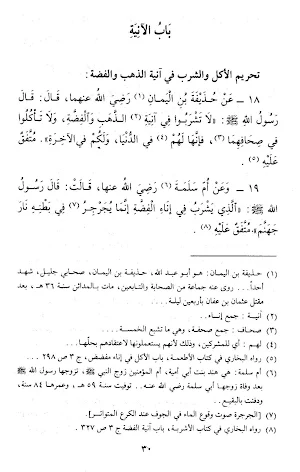 بَابُ الآنِيَةِ
تحريم الأكل والشرب في آنية الذهب والفضة:
١٨ – عَنْ حُذَيْفَةَ بْنِ الْيَمَانِ (١) رَضِيَ اللهُ عنهما، قَالَ: قَالَ
رَسُولُ اللهِ ﷺ: «لَا تَشْرَبُوا فِي آنِيَةِ (٢) الذَّهَبِ وَالْفِضَّةِ، وَلَا تَأْكُلُوا
فِي صِحَافِهِمَا (٣)، فَإِنَّهَا لَهُمْ (٤) فِي الدُّنْيَا، وَلَكُمْ فِي الآخِرَةِ». مُتَّفَقٌ
عَلَيْهِ (٥).
١٩ – وَعَنْ أُمِّ سَلَمَةَ (٦) رَضِيَ اللهُ عنها، قَالَتْ: قَالَ رَسُولُ
اللهِ ﷺ: «الَّذِي يَشْرَبُ فِي إِنَاءِ الْفِضَّةِ إِنَّمَا يُجَرْجِرُ (٧) فِي بَطْنِهِ نَارَ
جَهَنَّمَ». مُتَّفَقٌ عَلَيْهِ (٨).
(١) حذيفة بن اليمان: هو أبو عبد الله، حذيفة بن اليمان، صحابي جليل، شهد
أحداً... روى عنه جماعة من الصحابة والتابعين، مات بالمدائن سنة ٣٦ هـ، بعد
مقتل عثمان بن عفان بأربعين ليلة....
(٢) آنية: جمع إناء..
(٣) صحاف: جمع صحفة، وهي ما تشبع الخمسة....
(٤) لهم: أي للمشركين، وذلك لأنهم يستعملونها لاعتقادهم بحلّها..
(٥) رواه البخاري في كتاب الأطعمة، باب الأكل في إناء مفضض، ج ٣ ص ٢٩٨...
(٦) أم سلمة: هي هند بنت أبي أمية، أم المؤمنين زوج النبي ﷺ، تزوجها رسول الله ﷺ
بعد وفاة زوجها أبي سلمة رضي الله عنه.. توفيت سنة ٥٩ هـ، وعمرها ٨٤ سنة،
ودفنت بالبقيع..
(٧) الجرجرة صوت وقوع الماء في الجوف عند الكرع المتواتـر].
(٨) رواه البخاري في كتاب الأشربة، باب آنية الفضة ج ٣ ص ٣٢٧.
٣٠